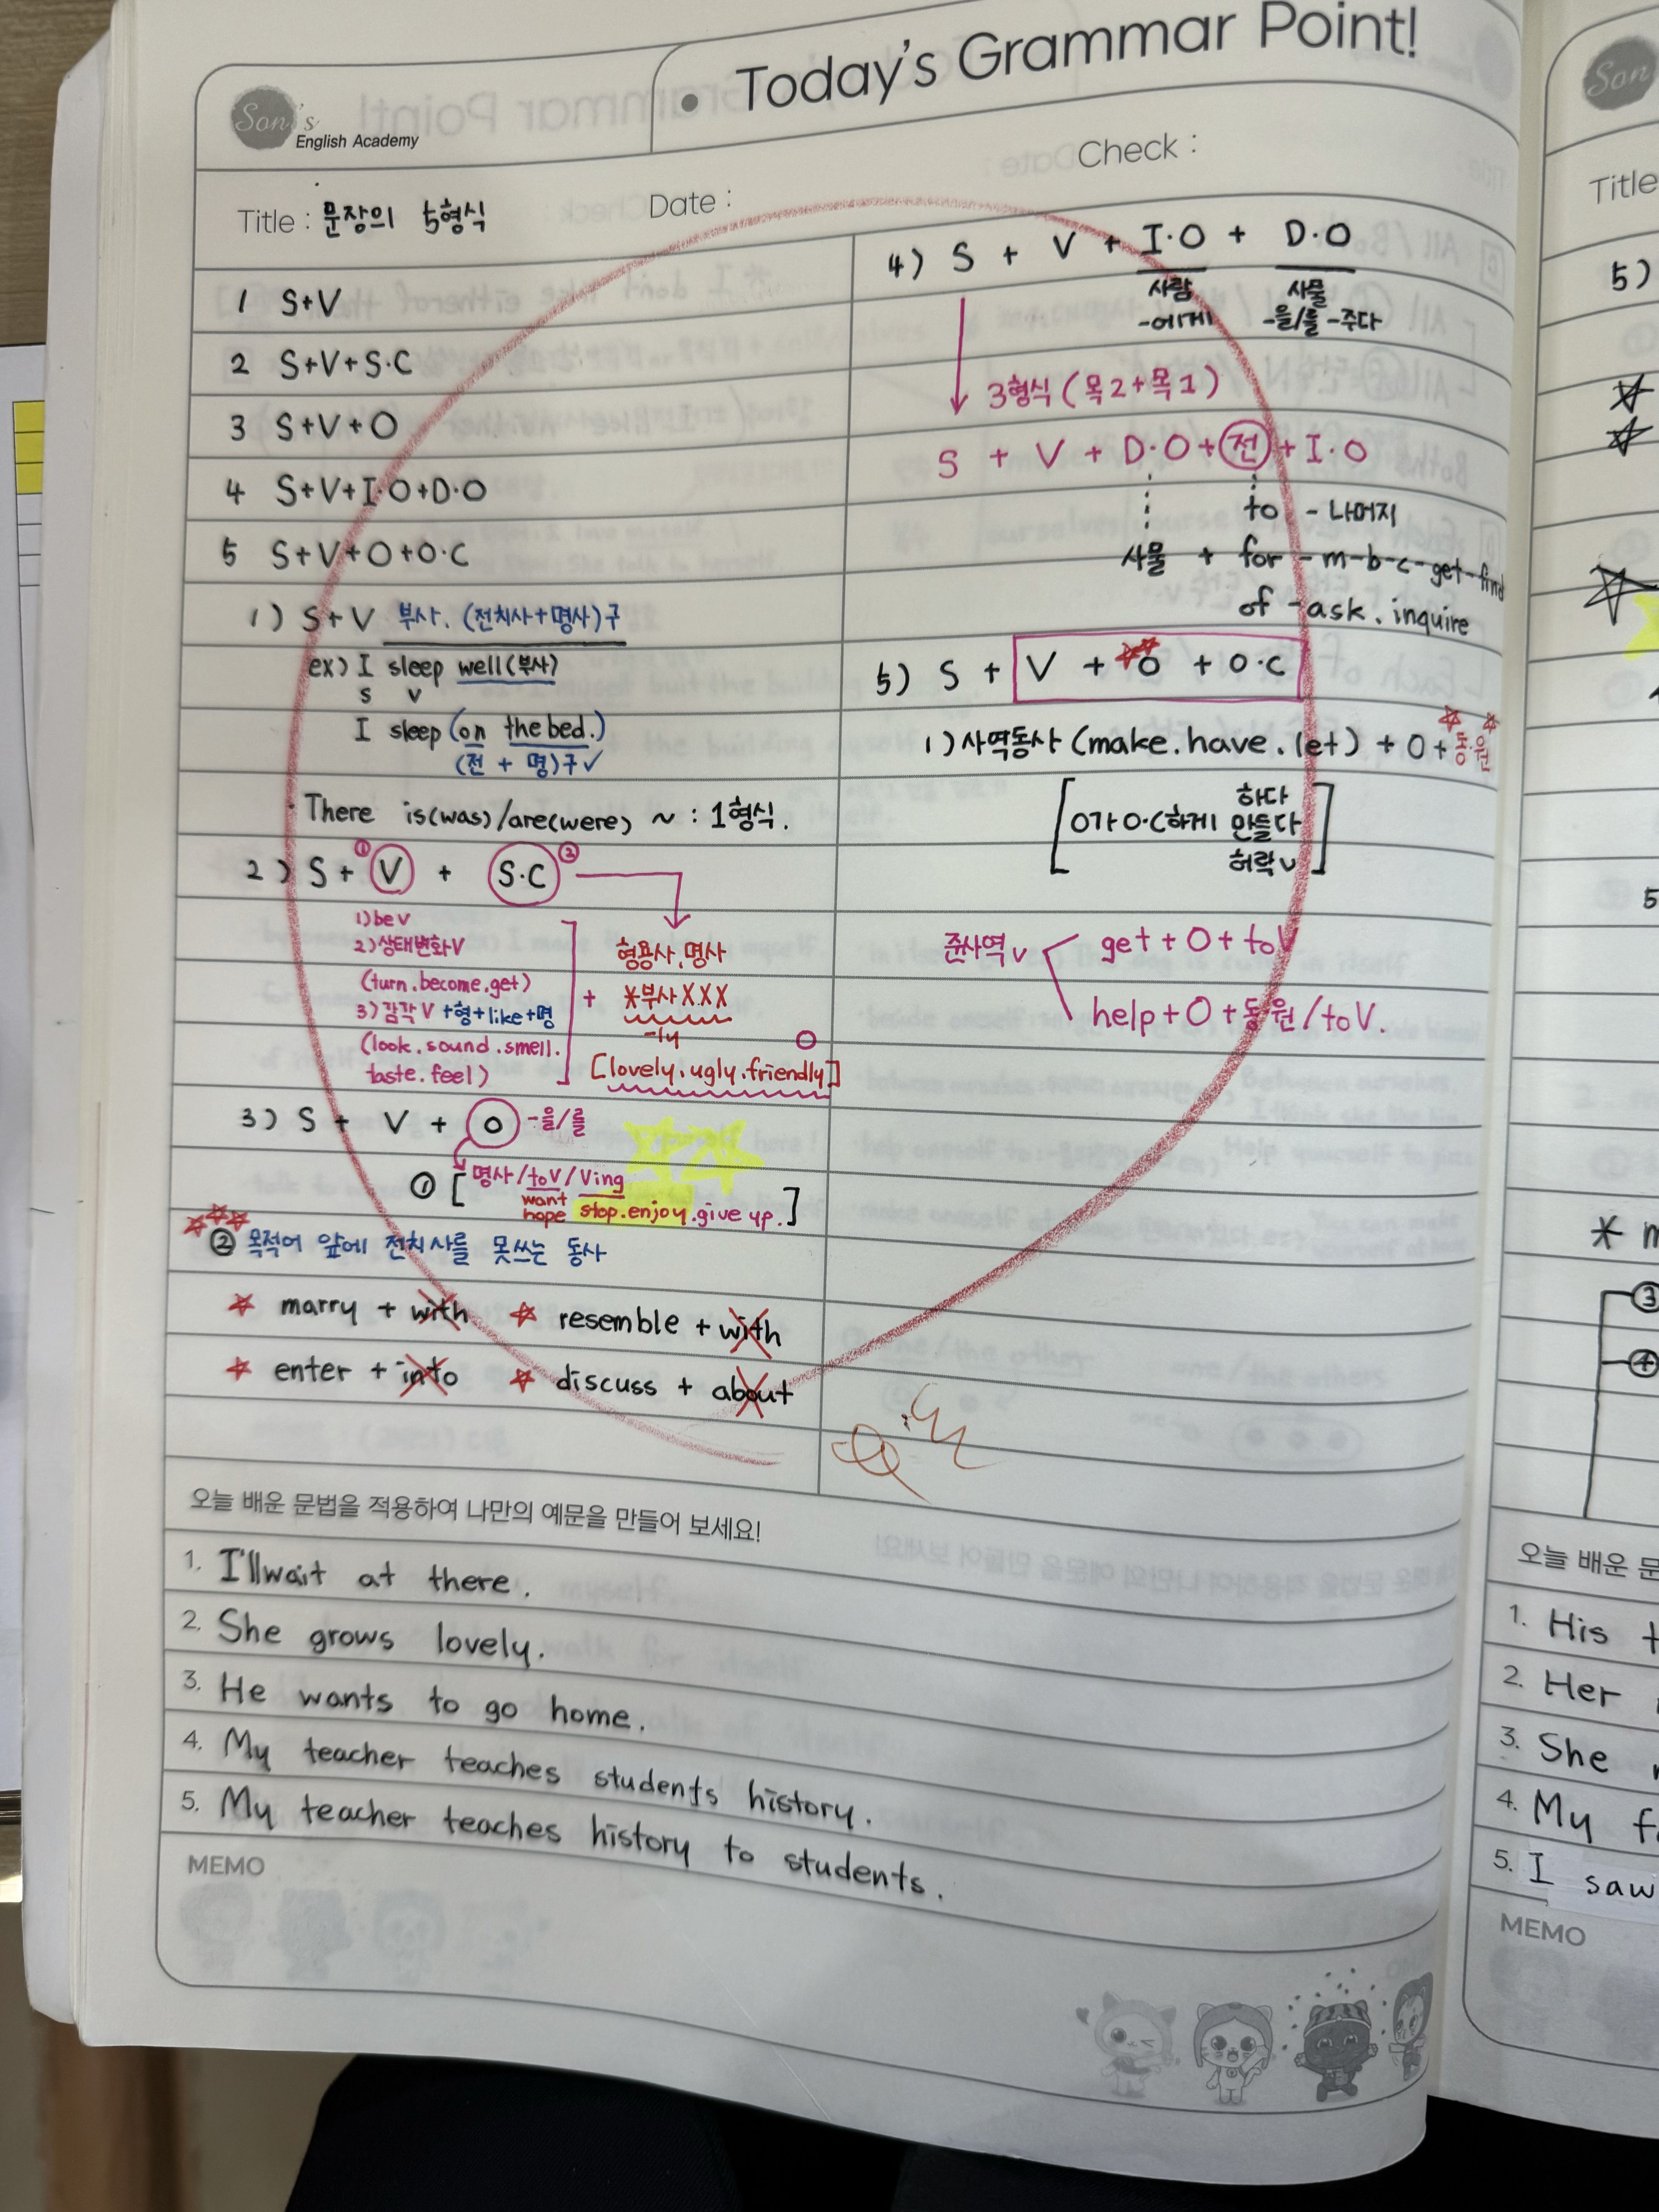 Son's English Academy
Today's Grammar Point!
Title : 문장의 5형식
Date :
Check :
1 S+V
2 S+V+S·C
3 S+V+O
4 S+V+I·O+D·O
5 S+V+O+O·C
1) S+V 부사. (전치사+명사)구
ex) I sleep well(부사)
S V
I sleep (on the bed.)
(전 + 명)구✓
There is(was)/are(were) ~ : 1형식.
2) S+ ①V + S·C②
1) be V
2) 상태변화V
(turn.become.get)
3) 감각V +형+like+명
(look.sound.smell.
taste.feel)
+
형용사,명사
*부사XXX
-ly
[lovely.ugly.friendly]
3) S + V + O -을/를
① [명사/toV/Ving
want stop.enjoy.give up.]
hope
② 목적어 앞에 전치사를 못쓰는 동사
☆ marry + with ☆ resemble + with
☆ enter + into ☆ discuss + about
4) S + V + I·O + D·O
사람 사물
-에게 -을/를 -주다
3형식 (목2+목1)
S + V + D·O + 전 + I·O
to - 나머지
사물 + for - m-b-c-get-find
of -ask.inquire
5) S + V + O + O·C
1) 사역동사 (make.have.let) + O + 동원
하다
O가 O·C하게 만들다
허락V
준사역V
get + O + toV
help + O + 동원/toV.
오늘 배운 문법을 적용하여 나만의 예문을 만들어 보세요!
1. I'll wait at there.
2. She grows lovely.
3. He wants to go home.
4. My teacher teaches students history.
5. My teacher teaches history to students.
MEMO
Son
Title
5)
5
* m
③
④
오늘 배운 문
1. His
2. Her
3. She
4. My
5. I saw
MEMO